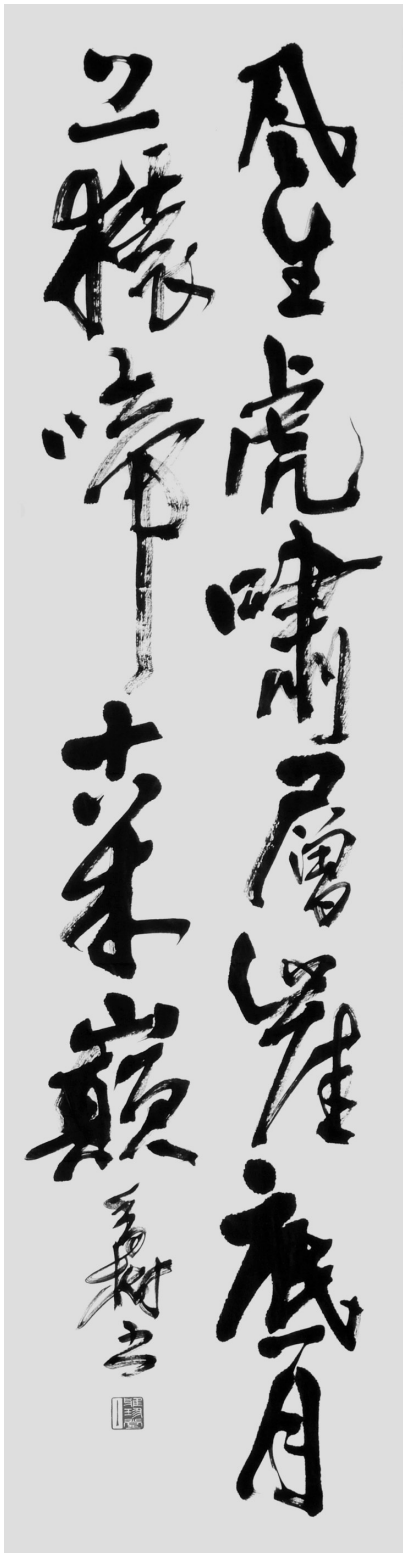 風生虎嘯層崖底月
上猿啼巓
樹書